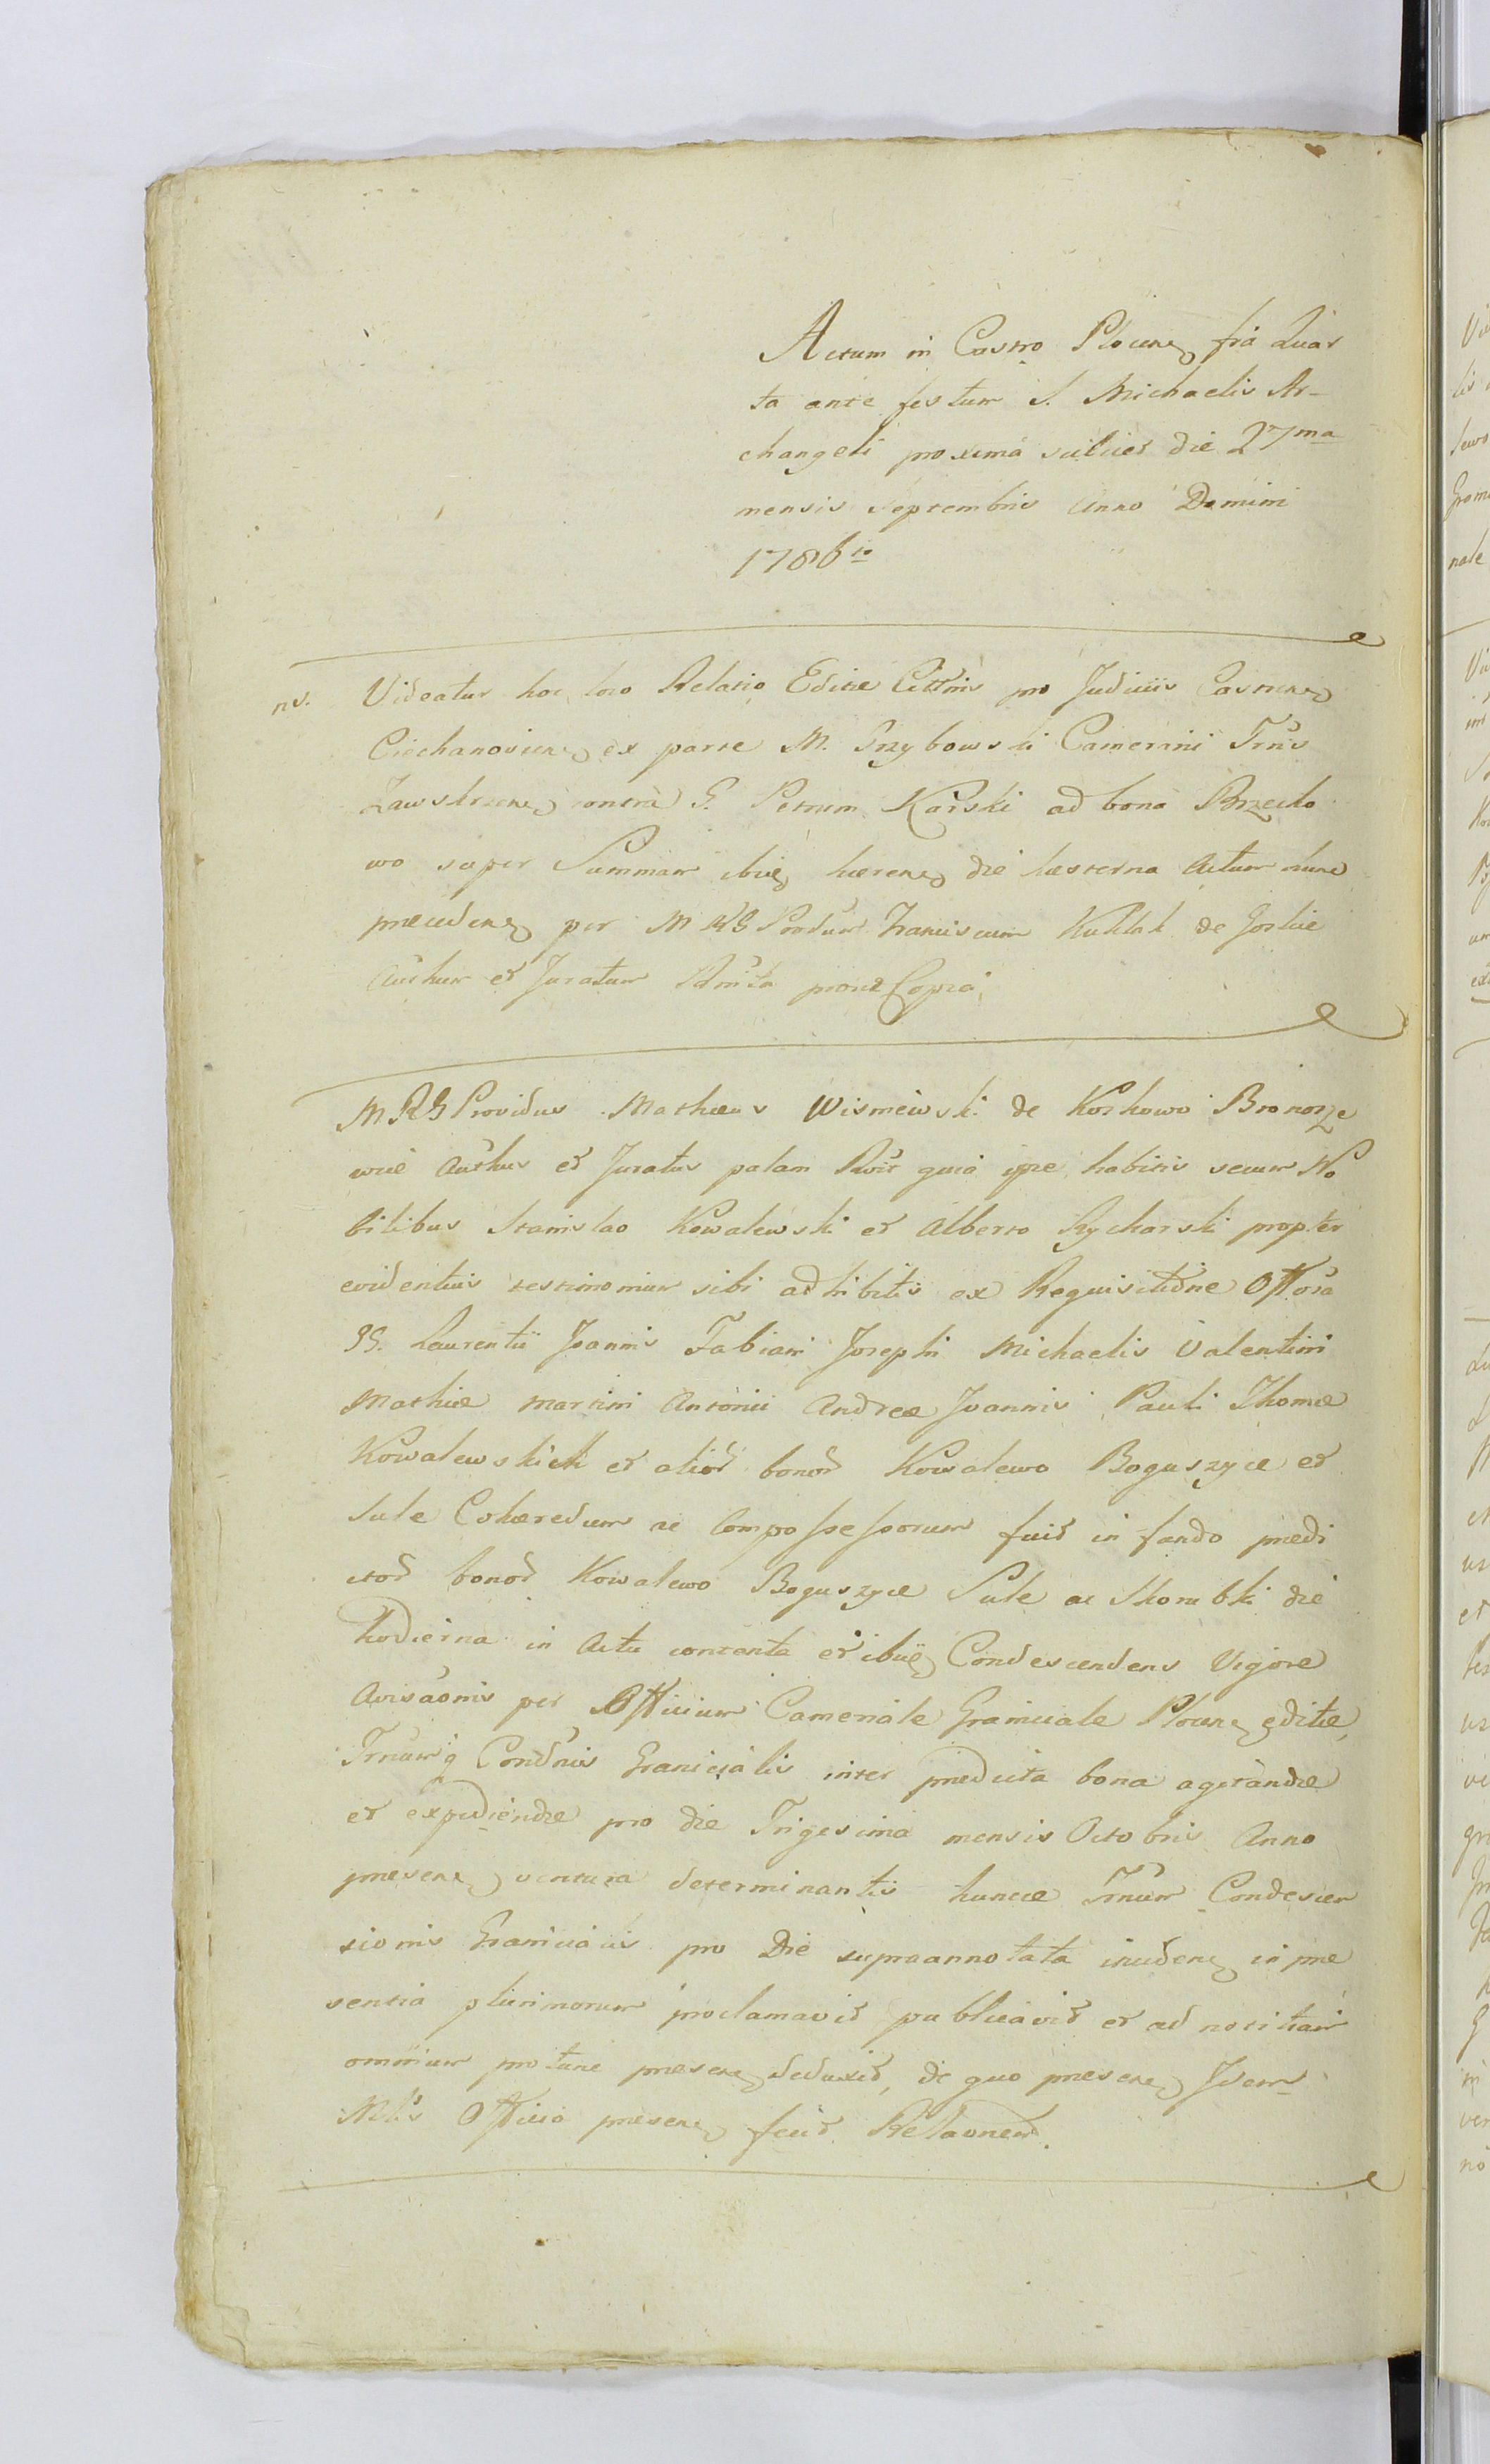 Actum in Castro Plocen, fria Quar
ta ante festum S. Michaelis Ar-
changeli proxima scilicet die 27ma
mensis Septembris Anno Domini
1786to
ns. Videatur hoc loco Relatio Editae Cittnis pro Judiciis Castren,
Ciechanovien, ex parte M. Przybowski Camerarii Trris
Zawskrzen, contra G. Petrum Karski ad bona Brzecho
wo super Summam ibiq, haeren, die hesterna Actum hunc
praeceden, per M RG Produm Franciscum Kuklak de Goslice
Authum et Juratum prout Copia,
M RG Providus Mathaeus Wisniewski de Koskowo Bronosze
wice Authus et Juratus palam Rvit quia ipse habitis secum No
bilibus Stanislao Kowalewski et Alberto Rycharski propter
evidentius testimonium sibi adhibitis ex Requisitione Offosa
GG. Laurentii Joannis Fabiani Josephi Michaelis Valentini
Mathiae Martini Antonii Andreae Joannis Pauli Thomae
Kowalewskich et alior bonor Kowalewo Boguszyce et
Sule Cohaeredum ac Compossessorum fuit in fundo praedi
ctor bonor Kowalewo Boguszyce Sule ac Skorubki die
hodierna in Actu contenta et ibiq, Condescendens Vigore
Avisaonis per Officium Camerale Graniciale Plocen, editae,
Trnumq Condnis Granicialis inter praedicta bona agitandae
et expediendae pro die Trigesima mensis Octobris Anno
praesen, ventura determinantis huncce Trnum Condescen
sionis Granicialis pro Die supraannotata inciden, in prae
sentia plurimorum proclamavit publicavit et ad notitiam
omnium pro tunc praesen, deduxit, de quo praesen, Idem
Mlis Officio praesen, fecit Relaonem.